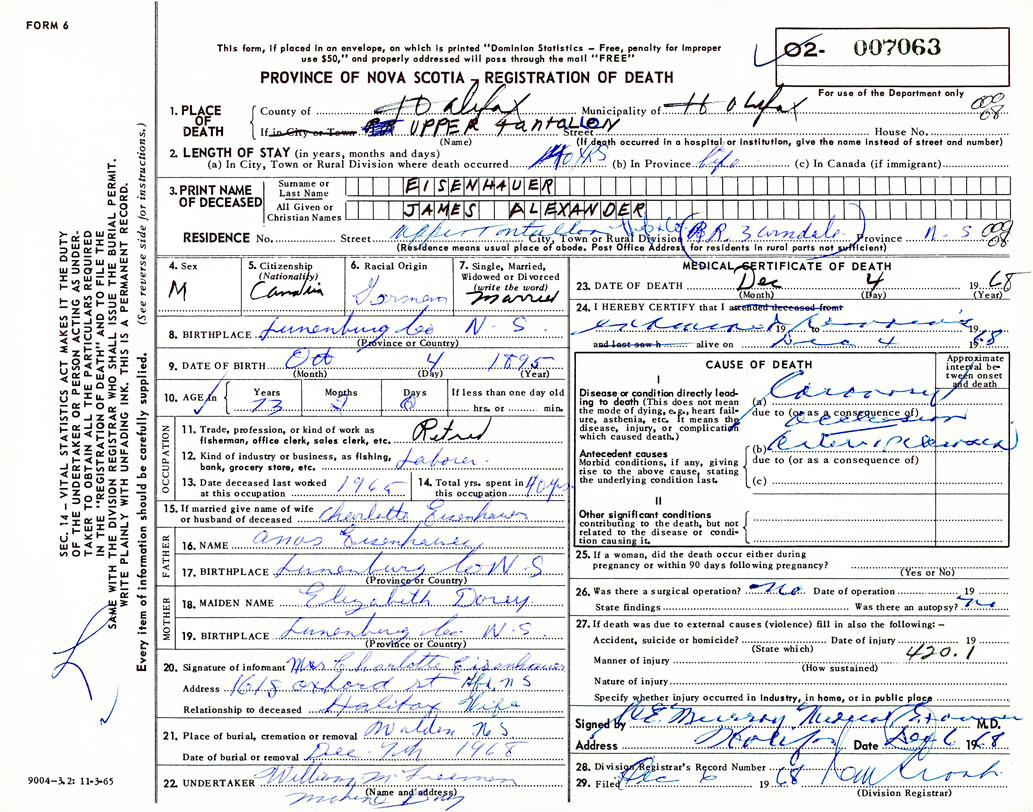 FORM 6
This form, if placed in an envelope, on which is printed "Dominion Statistics – Free, penalty for improper
use $50," and properly addressed will pass through the mail "FREE"
PROVINCE OF NOVA SCOTIA – REGISTRATION OF DEATH
02- 007063
For use of the Department only
1. PLACE OF DEATH
County of Halifax Municipality of Halifax
If in City or Town UPPER Tantallon Street House No.
(Name) (If death occurred in a hospital or institution, give the name instead of street and number)
2. LENGTH OF STAY (in years, months and days)
(a) In City, Town or Rural Division where death occurred 40 yrs (b) In Province life (c) In Canada (if immigrant)
3. PRINT NAME OF DECEASED
Surname or Last Name EISENHAUER
All Given or Christian Names JAMES ALEXANDER
RESIDENCE No. Street Upper Tantallon City, Town or Rural Division Province N.S
(Residence means usual place of abode. Post Office Address for residents in rural parts not sufficient)
4. Sex M
5. Citizenship (Nationality)
6. Racial Origin German
7. Single, Married, Widowed or Divorced (write the word) Married
8. BIRTHPLACE Lunenburg Co N-S
(Province or Country)
9. DATE OF BIRTH Oct 4 1895
(Month) (Day) (Year)
10. AGE in Years 73 Months 2 Days 0 If less than one day old hrs. or min.
OCCUPATION
11. Trade, profession, or kind of work as fisherman, office clerk, sales clerk, etc. Retired
12. Kind of industry or business, as fishing, bank, grocery store, etc. Laborer
13. Date deceased last worked at this occupation 1965
14. Total yrs. spent in this occupation 40 yrs
15. If married give name of wife or husband of deceased Charlotte Eisenhauer
FATHER
16. NAME Eisenhauer
17. BIRTHPLACE Lunenburg Co N-S
(Province or Country)
MOTHER
18. MAIDEN NAME Elizabeth Dorey
19. BIRTHPLACE Lunenburg Co. N-S.
(Province or Country)
20. Signature of informant Mrs Charlotte Eisenhauer
Address 1618 oxford st Hfx N S
Relationship to deceased Halifax Wife
21. Place of burial, cremation or removal Walden N S
Date of burial or removal Dec. 7th 1968
22. UNDERTAKER William M Freeman
(Name and address)
MEDICAL CERTIFICATE OF DEATH
23. DATE OF DEATH Dec 4 1968
(Month) (Day) (Year)
24. I HEREBY CERTIFY that I attended deceased from
examined 19 to remains 19
and last saw h alive on Dec 4 1968
CAUSE OF DEATH
Approximate interval between onset and death
I
Disease or condition directly leading to death (This does not mean the mode of dying, e.g., heart failure, asthenia, etc. It means the disease, injury, or complication which caused death.)
(a) Coronary
due to (or as a consequence of)
occlusion
Antecedent causes
Morbid conditions, if any, giving rise to the above cause, stating the underlying condition last.
(b)
due to (or as a consequence of)
(c)
II
Other significant conditions contributing to the death, but not related to the disease or condition causing it.
25. If a woman, did the death occur either during pregnancy or within 90 days following pregnancy?
(Yes or No)
26. Was there a surgical operation? No Date of operation 19
State findings Was there an autopsy? No
27. If death was due to external causes (violence) fill in also the following: –
Accident, suicide or homicide? Date of injury 19
(State which)
420.1
Manner of injury
(How sustained)
Nature of injury
Specify whether injury occurred in industry, in home, or in public place
Signed by Murray Medical Examiner M.D.
Address Halifax Date Dec 6 1968
28. Division Registrar's Record Number
29. Filed Dec 6 1968
(Division Registrar)
SEC. 14 – VITAL STATISTICS ACT MAKES IT THE DUTY
OF THE UNDERTAKER OR PERSON ACTING AS UNDER-
TAKER TO OBTAIN ALL THE PARTICULARS REQUIRED
IN THE "REGISTRATION OF DEATH", AND TO FILE THE
SAME WITH THE DIVISION REGISTRAR WHO SHALL ISSUE THE BURIAL PERMIT.
WRITE PLAINLY WITH UNFADING INK. THIS IS A PERMANENT RECORD.
Every item of information should be carefully supplied. (See reverse side for instructions.)
9004–3.2: 11-3-65